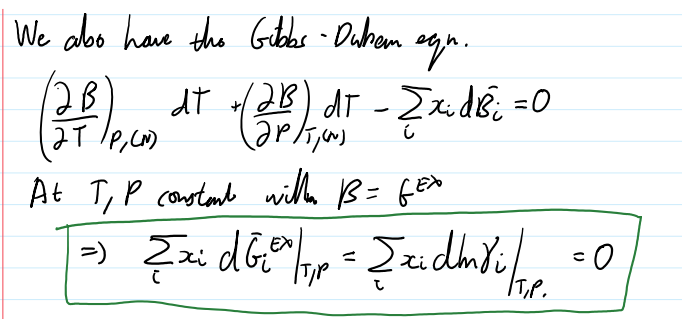 We also have the Gibbs-Duhem eqn.
(∂B/∂T)_{P,(N)} dT + (∂B/∂P)_{T,(N)} dT - ∑_i x_i dB̄_i = 0
At T, P constant with B = G^{EX}
⇒) ∑_i x_i dḠ_i^{EX}|_{T,P} = ∑_i x_i dlnγ_i|_{T,P.} = 0